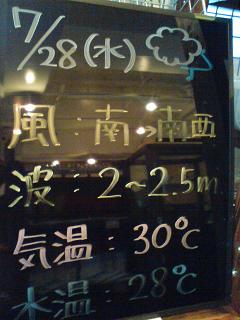 7/28(水)
風:南→南西
波:2~2.5m
気温:30℃
水温:28℃